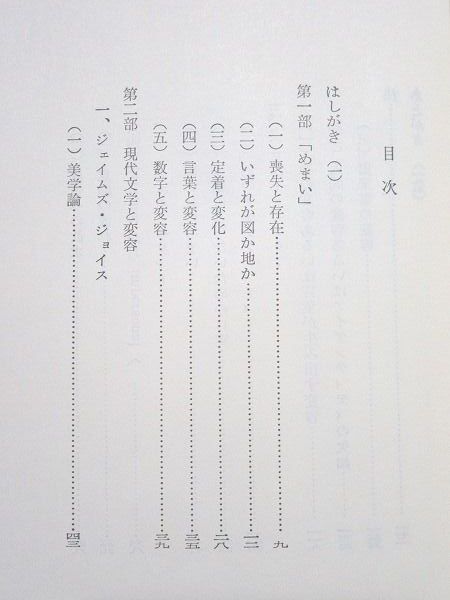 目次
はしがき (一)
第一部 「めまい」
(一) 喪失と存在……九
(二) いずれが図か地か……一二
(三) 定着と変化……二八
(四) 言葉と変容……三五
(五) 数字と変容……三九
第二部 現代文学と変容
一、ジェイムズ・ジョイス
(一) 美学論……四三